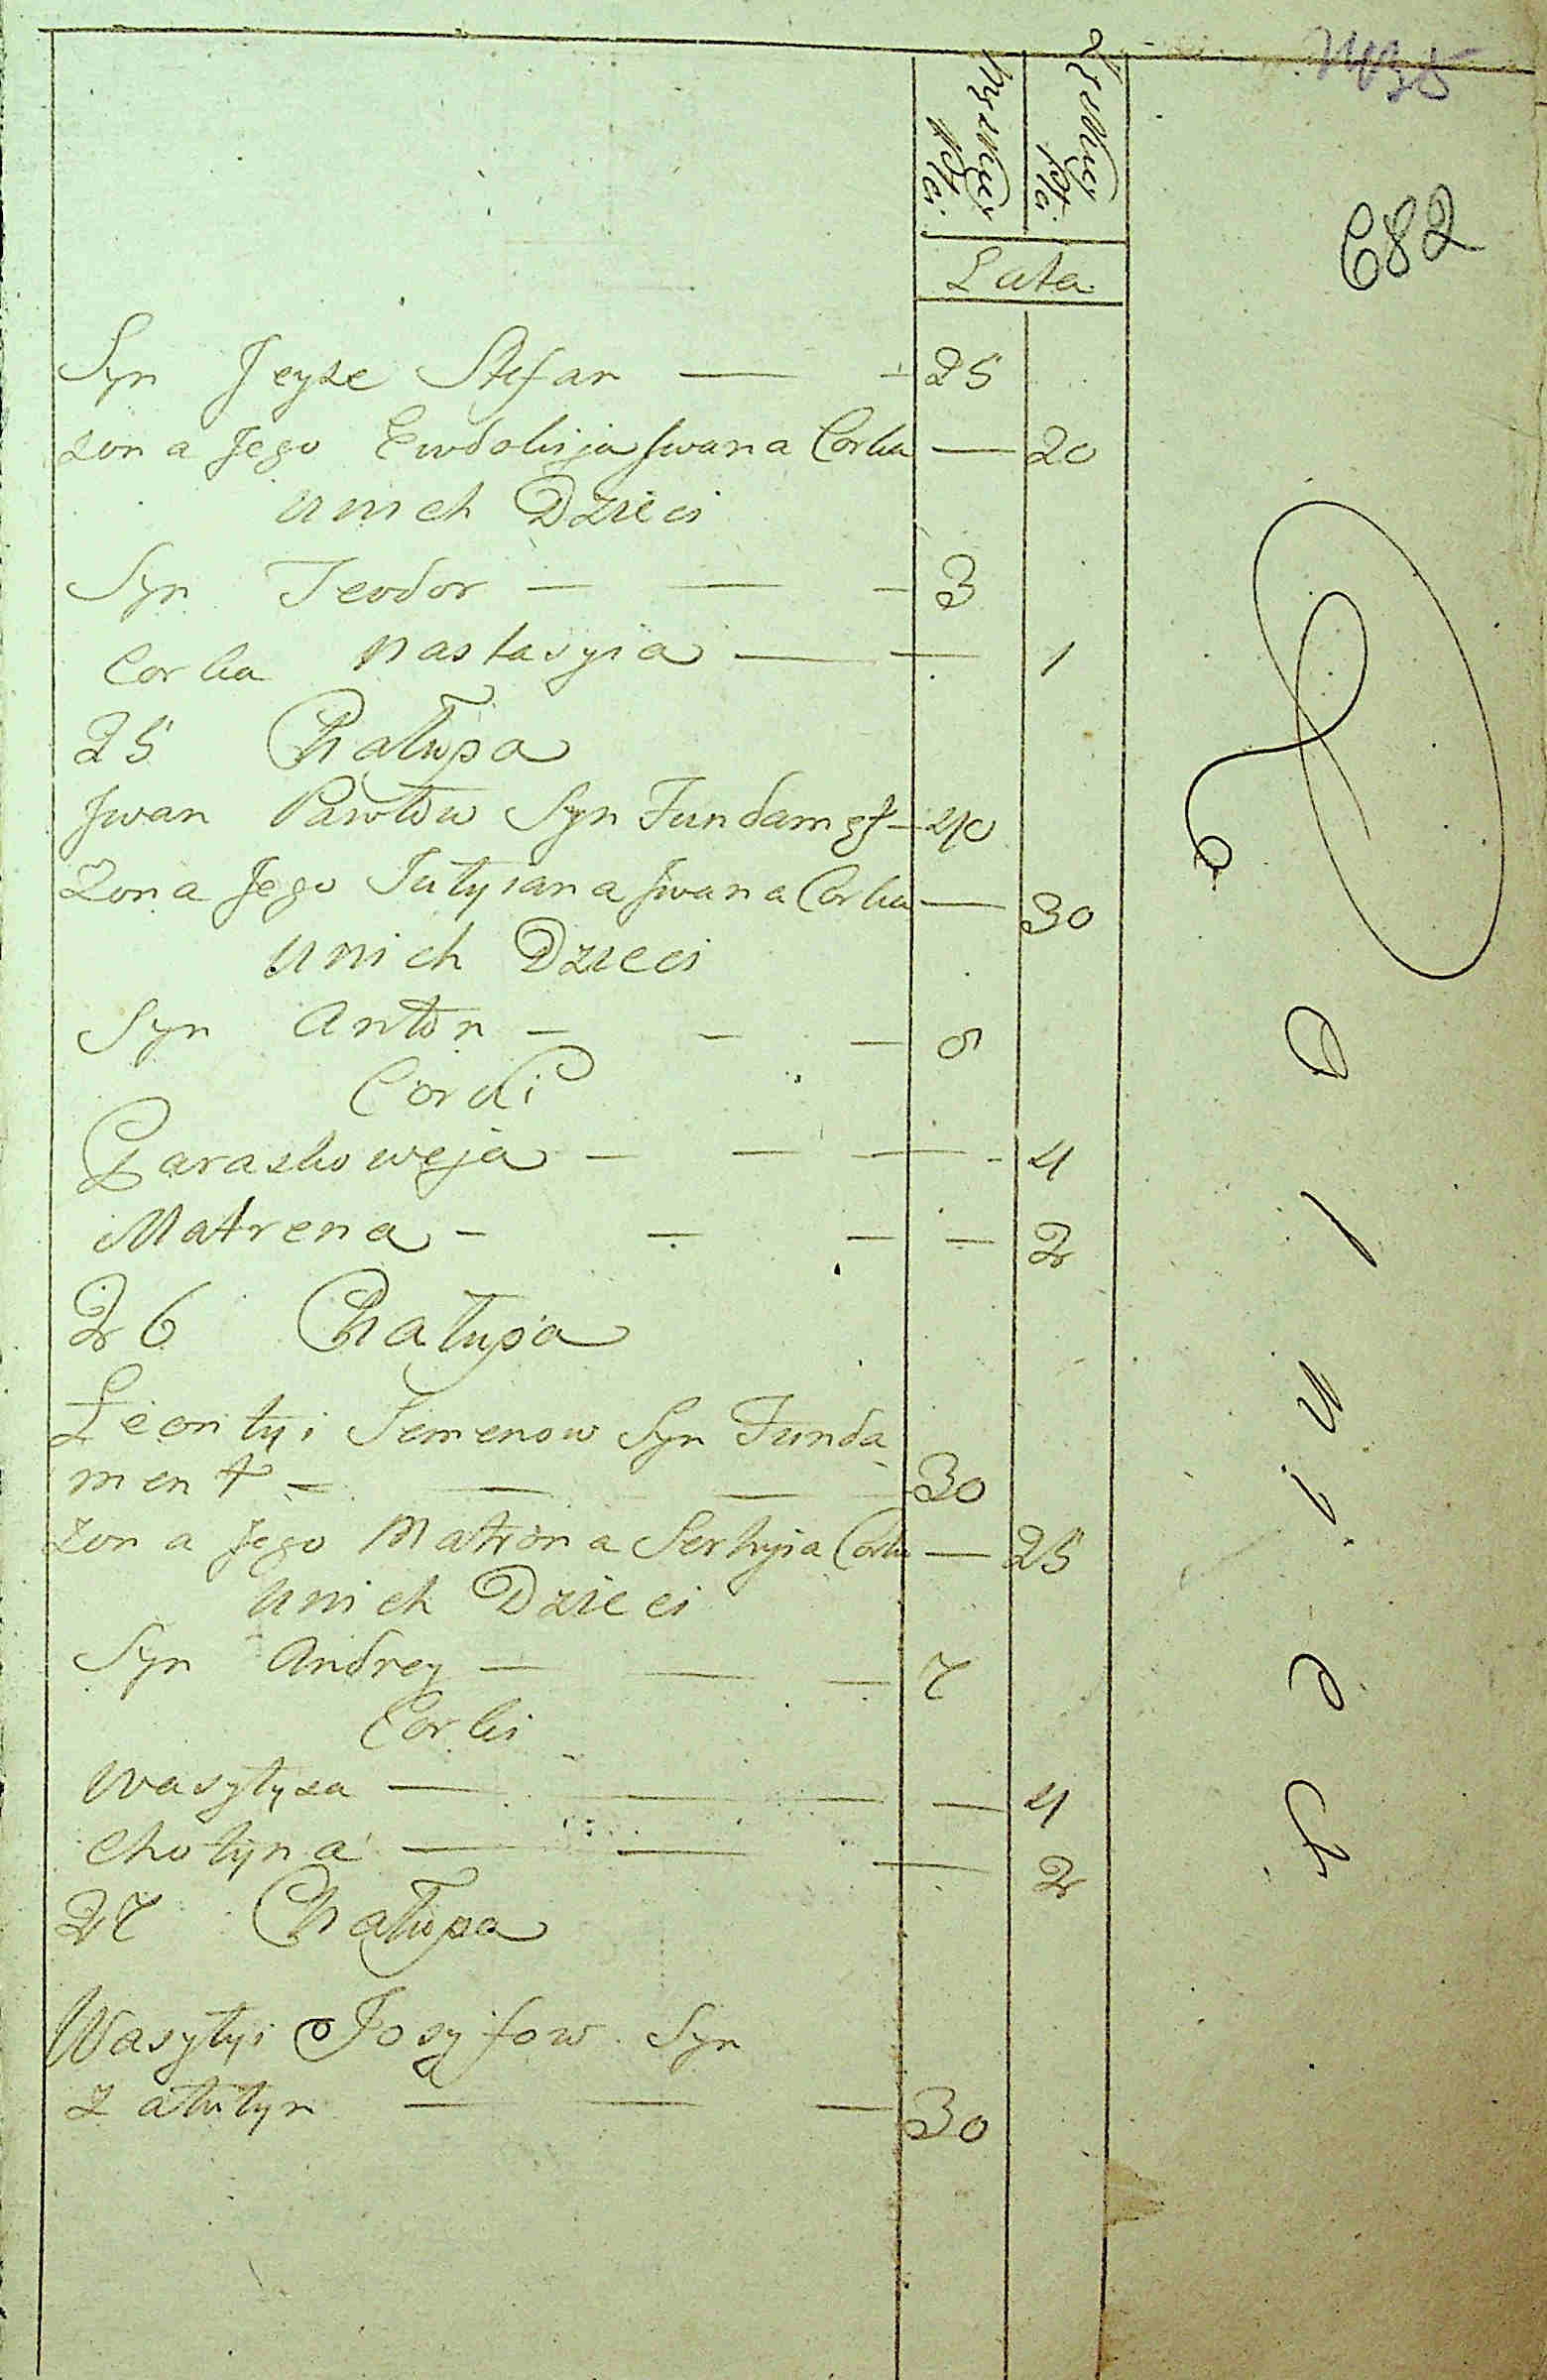 Męskiej płci.
Żeńskiej płci.
682
Lata
Syn Jeyże Stefan — — 25
Żona Jego Ewdokija Jwana Corka — 20
U nich Dzieci
Syn Teodor — — — 3
Corka Nastasyia — — 1
25 Chałupa
Jwan Pawłow Syn Fundam — 40
Zona Jego Tatyiana Jwana Corka — 30
U nich Dzieci
Syn Anton — — — 6
Corki
Paraskoweja — — — - 4
Matrena — — — — 2
26 Chałupa
Leontyi Semenow Syn Funda
ment — — — 30
Zona Jego Matrona Serhyia Corka — 25
U nich Dzieci
Syn Andrey — — — 7
Corki
Wasyłyza — — — — 4
Chotyna — — — 2
27 Chałupa
Wasyłyi Josyfow Syn
— — — 30